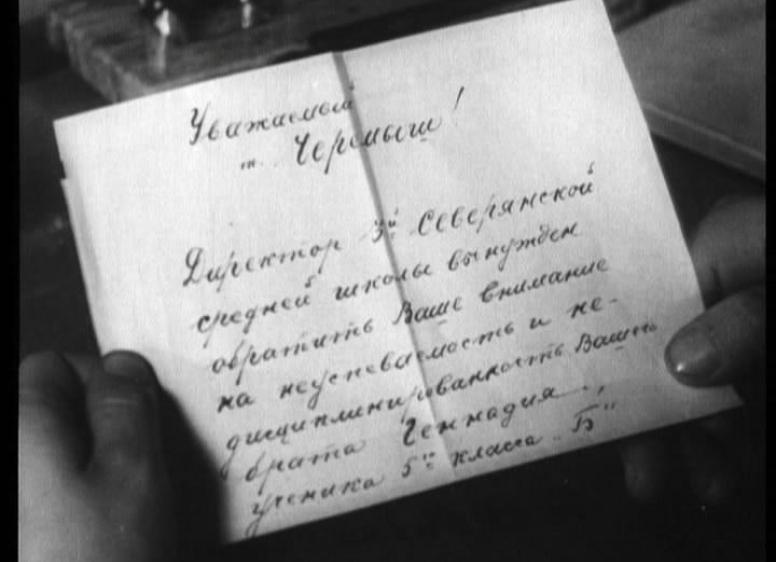 Уважаемый
т. Черемыш!
Директор 3й Северянской
средней школы вынужден
обратить Ваше внимание
на неуспеваемость и не-
дисциплинированность Вашего
брата Геннадия,
ученика 5го класса „Б"